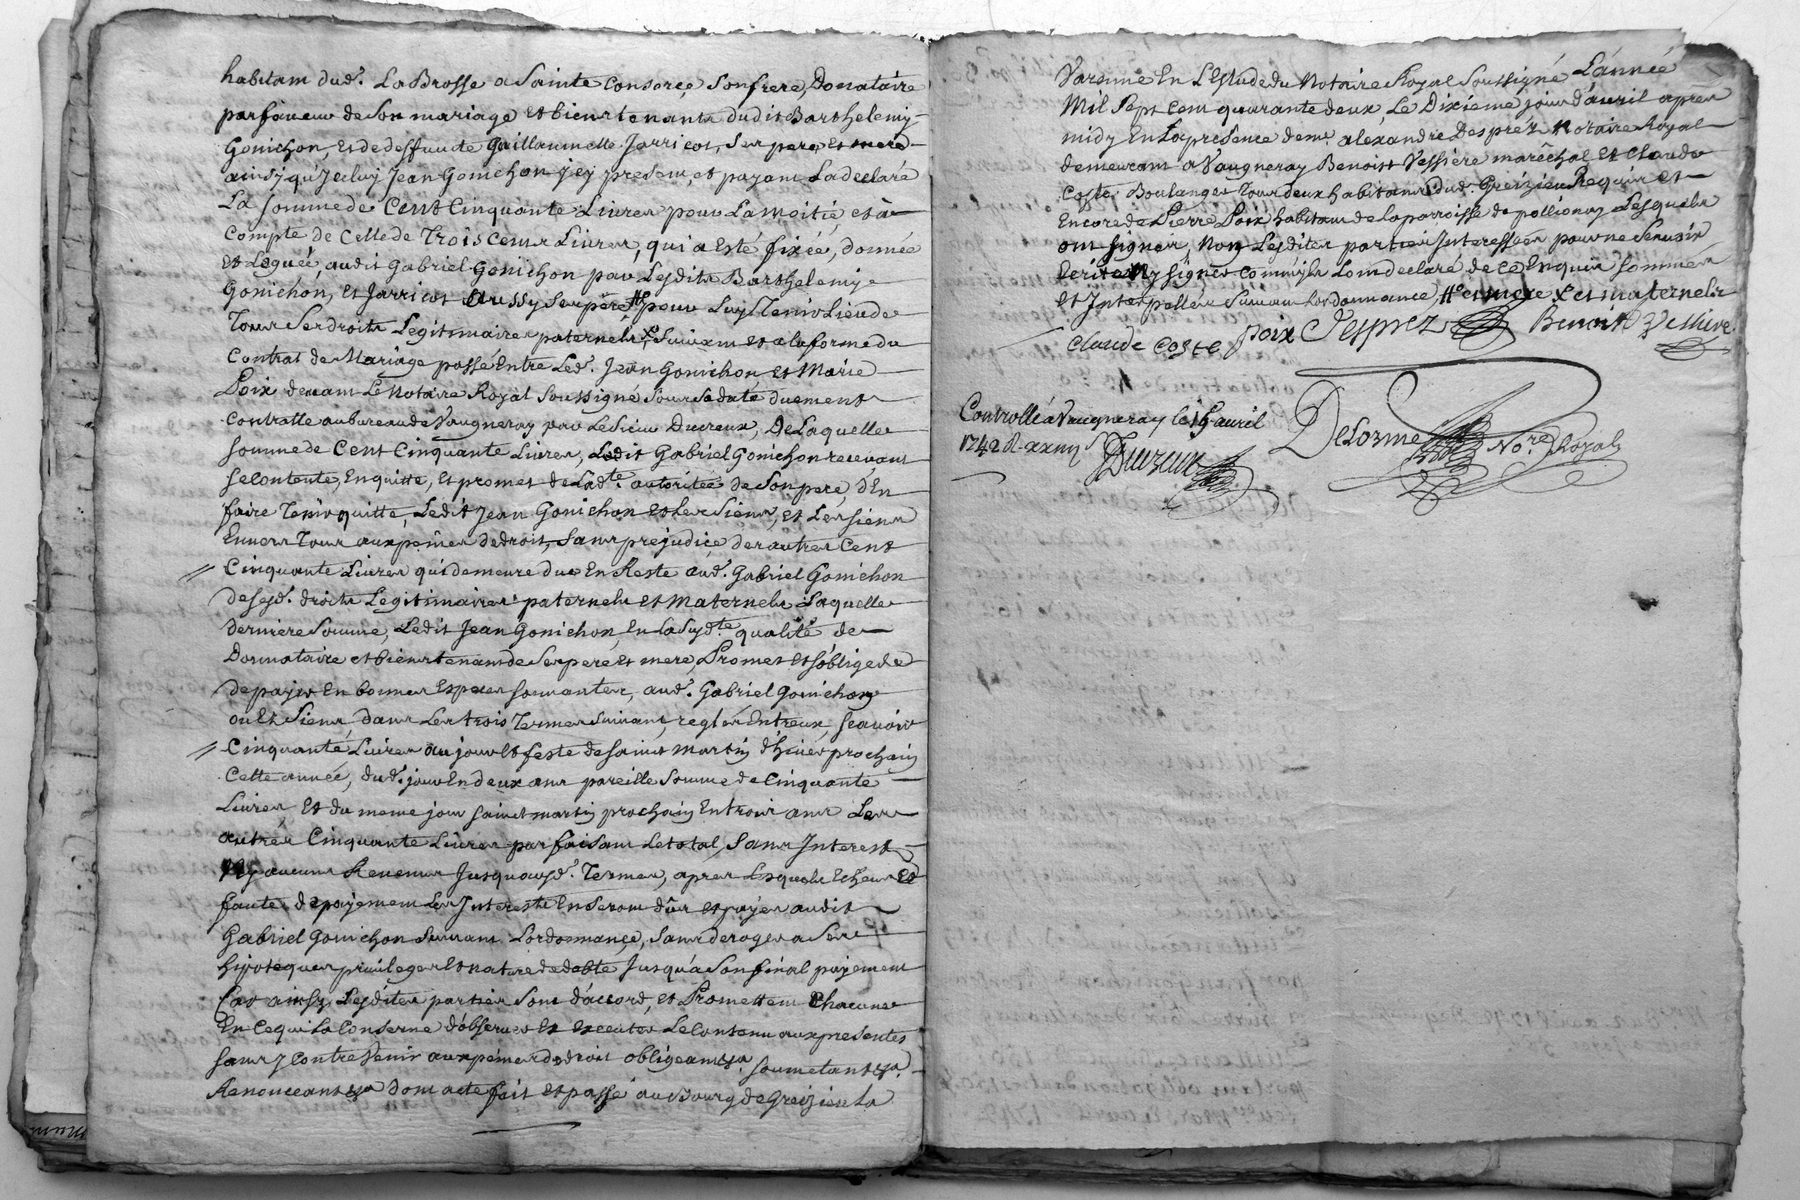 habitant dud. LaBrosse a Sainte Consorçe Son frere, Donataire
par faveur de Son mariage et bienstenants dudit Barthelemy
Gonichon, et de deffunte Guillaumette Jarricot, Ses pere et mere
ainsy qu'Jceluy Jean Gonichon jcy present, et payant La declaré
La somme de Cent Cinquante Livres pour La moitié, et à
Compte de Celle de Trois Cents Livres, qui a Esté fixée, donnée
et Leguée, audit Gabriel Gonichon par Lesdits Barthelemy
Gonichon, et Jarricot aussy Ses pere # pour Luy Tenir Lieu de
Tous Ses droits Legitimaires paternels, x Suivant et a la forme du
Contrat de Mariage passé Entre Led. Jean Gonichon, et Marie
Poix devant Le Notaire Royal Soussigné Sous Sa date duement
Controlle au bureau de Vaugneray par Le Sieur Ducreux, De Laquelle
Somme de Cent Cinquante Livres, Ledit Gabriel Gonichon recevant
Se Contente, En quitte, et promet de Ladte autoritée de Son pere, d'En
faire Tenir quitte, Ledit Jean Gonichon et Les Siens, et Les siens
Envers Tous aux peines de droit, Sans prejudice des autres Cent
// Cinquante Livres qui demeure due En Reste aud. Gabriel Gonichon
de Sesd. droits Legitimaires paternels et Maternels Laquelle
derniere Somme, Ledit Jean Gonichon, En La Susdte qualité de
Donnataire et bienstenant de Ses pere et mere, Promet et S'oblige de
de payer En bonnes Especes Sonnantes, aud. Gabriel Gonichon
ou Es Siens, dans Les trois Termes Suivant, regles Entreux, Scavoir
// Cinquante Livres au jour et feste de Saint Martin d'hiver prochain
Cette année, dud. jour En deux ans pareille Somme de Cinquante
Livres, et du meme jour Saint martin prochain En trois ans Les
autres Cinquante Livres parfaisant Le total, Sans Interest
Ny aucuns Revenus Jusqu'auxd. Termes, apres Lesquels Echeus et
faute de payement Les Interests En Seront dûs et payes audit
Gabriel Gonichon Suivant L'ordonnance, Sans deroger a Ses
hipoteques privileges et nature de debte Jusqu'a Son final payement
Car ainsy Lesdites parties Sont d'accord, et Promettent Chacune
En Ce qui La Conserne d'observer et executer Le Contenu aux presentes
Sans y Contrevenir aux peines de droit obligeant &a. Soumetant &a.
Renonceant &a dont acte fait et passé au Bourg de Greizieu La
Varenne En L'Etude du Notaire Royal Soussigné L'année
Mil Sept Cent quarante deux, Le Dixieme jour d'avril apres
midy En La presence de me. alexandre Desprèz Notaire Royal
demeurant a Vaugneray Benoist Vessiere marêchal et Claude
Coste Boulanger Tous deux habitants dud. Greizieu Requis et
Encore de Pierre Poix habitant de La parroisse de pollionay Lesquels
ont Signer, Non Lesdites parties Interessées pour ne Scavoir
Ecrire Ny Signer Comm'ils L'ont declaré de Ce Enquis Sommer
et Interpeller Suivant L'ordonnance # et mere x et maternels
Claude Coste poix Desprez Benoit Vessiere
Controllé a Vaugneray le 15 avril
1742 R. xxiiij s
Ducreux
Delorme Nore Royal